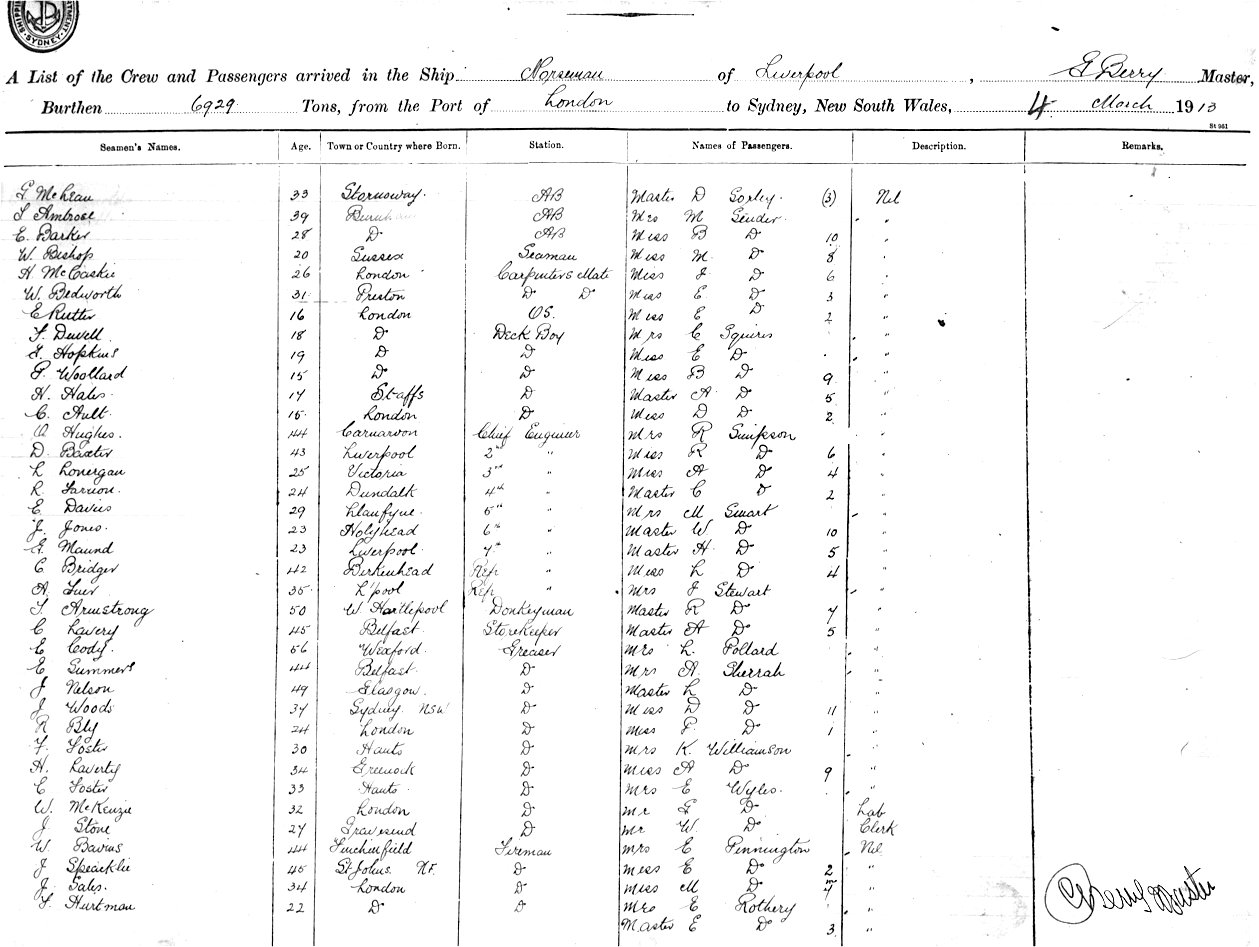 SYDNEY
A List of the Crew and Passengers arrived in the Ship Norseman of Liverpool, G Berry Master,
Burthen 6929 Tons, from the Port of London to Sydney, New South Wales, 4 March 1913
St 961
Seamen's Names. Age. Town or Country where Born. Station. Names of Passengers. Description. Remarks.
G McLean 33 Stornoway. AB Master D Sorley (3) Nil
S Ambrose 39 AB Mrs M Sender " "
E. Barker 28 D AB Miss B D 10 "
W. Bishop 20 Sussex Seaman Miss M D 8 "
H McCaskie 26 London Carpenters Mate Miss J D 6 "
W. Bedworth 31 Preston D D Miss E D 3 "
E Rutter 16 London OS. Miss E D 2 "
F. Duvell 18 D Deck Boy Mrs C Squires "
G. Hopkins 19 D D Miss E D "
P. Woollard 15 D D Miss B D 9 "
H. Hales 17 Staffs D Master A D 5 "
C. Ault 15 London D Miss D D 2 "
O Hughes. 44 Carnarvon Chief Engineer Mrs R Simpson "
D. Baxter 43 Liverpool 2nd " Miss R D 6 "
L Lonergan 25 Victoria 3rd " Miss A D 4 "
R. 24 Dundalk 4th " Master C D 2 "
E Davies 29 5th " Mrs M Smart "
J Jones. 23 Holyhead 6th " Master W D 10 "
G. Maund 23 Liverpool 7th " Master H D 5 "
C Bridger 42 Birkenhead Rep " Miss L D 4 "
A. 35 L'pool Rep " Mrs J Stewart "
T Armstrong 50 W. Hartlepool Donkeyman Master R D 7 "
C Lavery 45 Belfast Storekeeper Master A D 5 "
E Cody. 56 Wexford. Greaser Mrs L. Pollard "
E Summers 44 Belfast D Mrs A. Sherrah "
J Nelson 49 Glasgow. D Master L D "
J Woods 37 Sydney. NSW D Miss D D 11 "
R Bly 24 London D Miss P. D 1 "
F. Foster 30 Hants D Mrs K. Williamson "
H. Laverty 34 Greenock D Miss A D 9 "
C Foster 33 Hants D Mrs E Wyles. "
W. McKenzie 32 London D Mr G D Lab
J Stone 27 Gravesend D Mr W. D Clerk
W. Bavins 44 Finchinfield Fireman Mrs E Pennington Nil
J 45 St Johns N.F. D Miss E D 2 "
J. Sales. 34 London D Miss M D 7 m "
F. Hurtman 22 D D Mrs E Rothery "
Master E D 3 "
G Berry Master